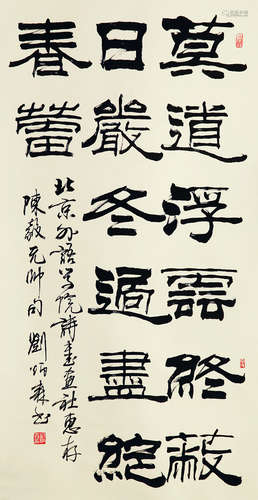 莫道浮雲終蔽
日嚴冬過盡綻
春蕾
北京外語学院詩書画社惠存
陳毅元帥句 劉炳森书